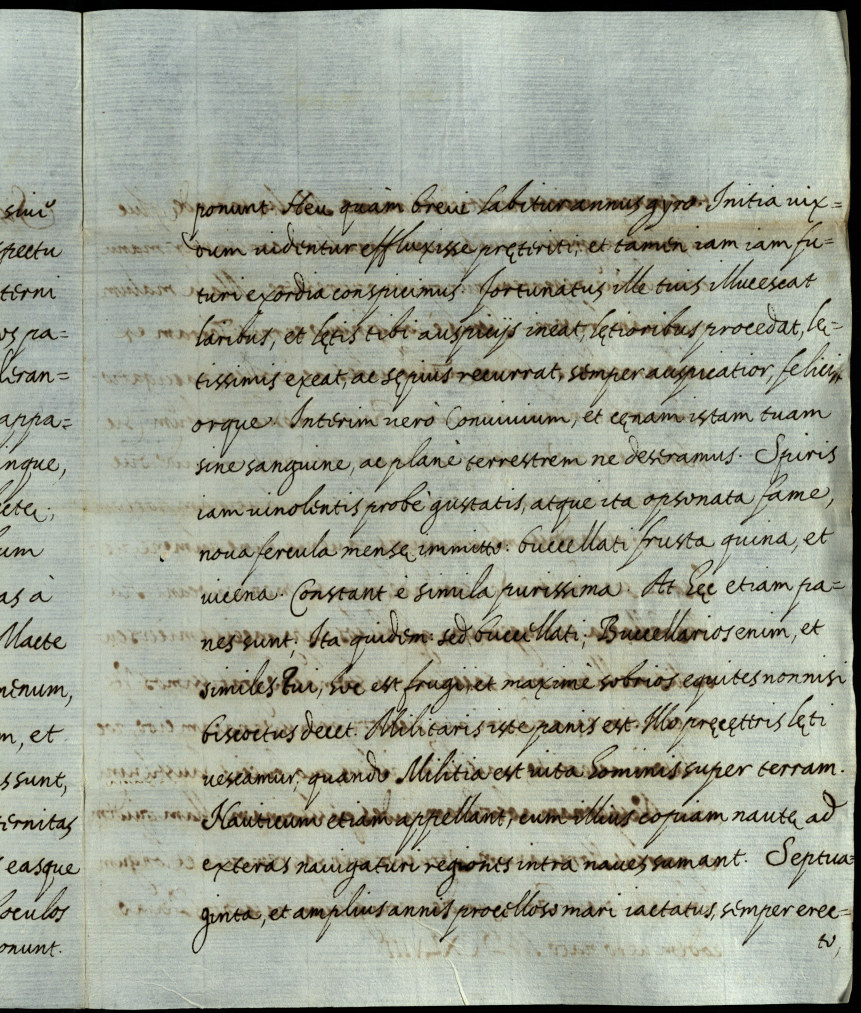 siui
spectu
terni
os pa=
leran=
appa=
inque,
um
as à
Macte
menum,
m, et
s sunt,
ternitas
s easque
loculos
onunt.
ponunt. Heu quàm breui labitur annus gyro. Initia uix=
dum uidentur effluxisse pręteriti; et tamen iam iam fu=
turi exordia conspicimus. Fortunatus ille tuis illucescat
laribus, et lętis tibi auspicijs ineat, lętioribus procedat, lę=
tissimis exeat, ac sępius recurrat, semper auspicatior, felici=
orque. Interim uerò Conuiuium, et cęnam istam tuam
sine sanguine, ac planè terrestrem ne deseramus. Spiris
iam uinolentis probè gustatis, atque ita opsonata fame,
noua fercula mensę immitto. buccellati frusta quina, et
uicena. Constant è simila purissima. At hęc etiam pa=
nes sunt; Ita quidem: sed buccellati; Buccellarios enim, et
similes tui, hoc est frugi, et maximè sobrios equites nonnisi
biscoctus decet. Militaris iste panis est. Illo pręcęttris lęti
uescamur, quando Militia est uita hominis super terram.
Nauticum etiam appellant, cum illius copiam nautę ad
exteras nauigaturi regiones intra naues sumant. Septua=
ginta, et amplius annis procelloso mari iactatus, semper erec=
to,